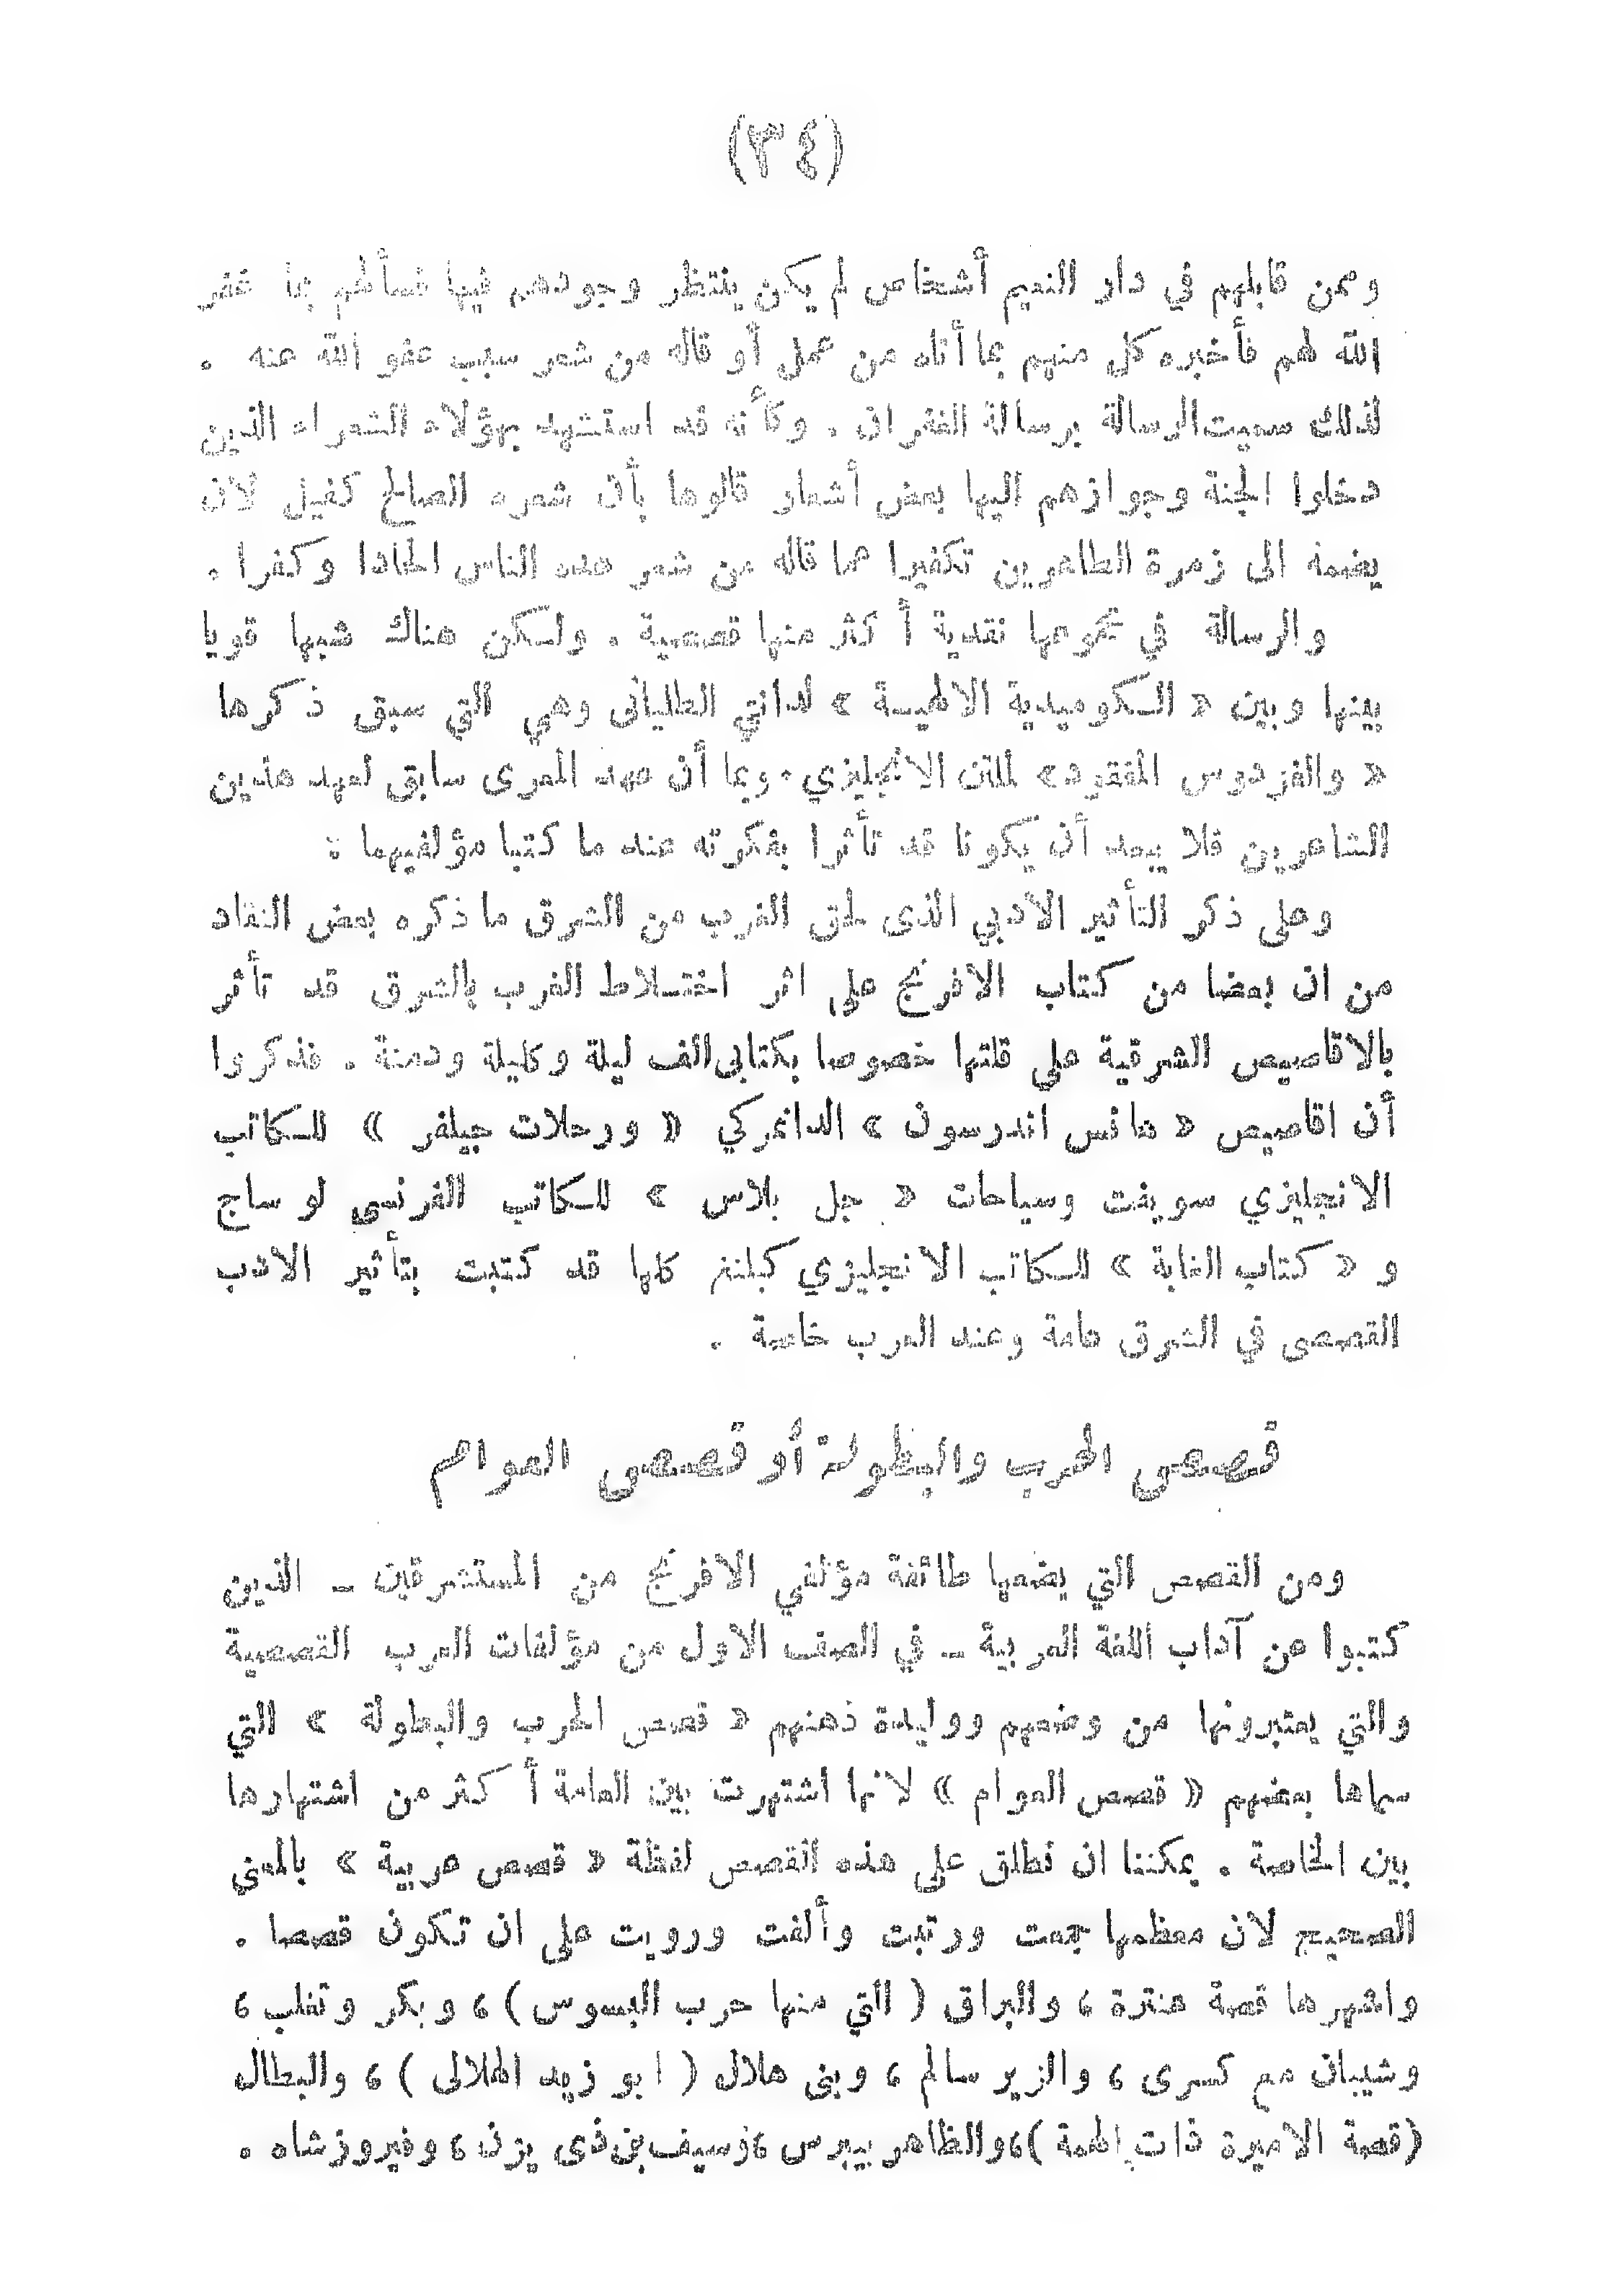 (٣٤)
وممن قابلهم في دار النعيم أشخاص لم يكن ينتظر وجودهم فيها فسألهم بما غفر
الله لهم فأخبره كل منهم بما أتاه من عمل أو قاله من شعر سبب عفو الله عنه .
لذلك سميت الرسالة برسالة الغفران . وكأنه قد استشهد بهؤلاء الشعراء الذين
دخلوا الجنة وجوازهم اليها بعض أشعار قالوها بأن شعره الصالح كفيل لان
يضمه الى زمرة الطاهرين تكفيرا عما قاله من شعر عده الناس الحادا وكفرا .
والرسالة في مجموعها نقدية أكثر منها قصصية . ولكن هناك شبها قويا
بينها وبين « الكوميدية الالهية » لدانتي الطلياني وهي التي سبق ذكرها
« والفردوس المفقود» لملتن الانجليزي . وبما أن عهد المعرى سابق لعهد هذين
الشاعرين فلا يبعد أن يكونا قد تأثرا بفكرته عند ما كتبا مؤلفيهما :
وعلى ذكر التأثير الأدبي الذى لحق الغرب من الشرق ما ذكره بعض النقاد
من ان بعضا من كتاب الافرنج على اثر اختلاط الغرب بالشرق قد تأثر
بالاقاصيص الشرقية على قلتها خصوصا بكتابى الف ليلة وكليلة ودمنة . فذكروا
أن اقاصيص « هانس اندرسون » الدانمركي « ورحلات جيلفر » للكاتب
الانجليزي سويفت وسياحات « جل بلاس » للكاتب الفرنسى لو ساج
و « كتاب الغابة » للكاتب الانجليزي كبلنغ كلها قد كتبت بتأثير الادب
القصصى في الشرق عامة وعند العرب خاصة .
قصص الحرب والبطولة أو قصص العوام
ومن القصص التي يضعها طائفة مؤلفي الافرنج من المستشرقين ــ الذين
كتبوا عن آداب اللغة العربية ــ في الصف الاول من مؤلفات العرب القصصية
والتي يعتبرونها من وضعهم ووليدة ذهنهم « قصص الحرب والبطولة » التي
سماها بعضهم « قصص العوام » لانها اشتهرت بين العامة أكثر من اشتهارها
بين الخاصة . يمكننا ان نطلق على هذه القصص لفظة « قصص عربية » بالمعنى
الصحيح لان معظمها جمعت ورتبت وألفت ورويت على ان تكون قصصا .
واشهرها قصة عنترة ، والبراق ( التي منها حرب البسوس ) ، وبكر وتغلب ،
وشيبان مع كسرى ، والزير سالم ، وبنى هلال ( ابو زيد الهلالى ) ، والبطال
(قصة الاميرة ذات الهمة )، والظاهر بيبرس ، وسيف بن ذى يزن ، وفيروزشاه .